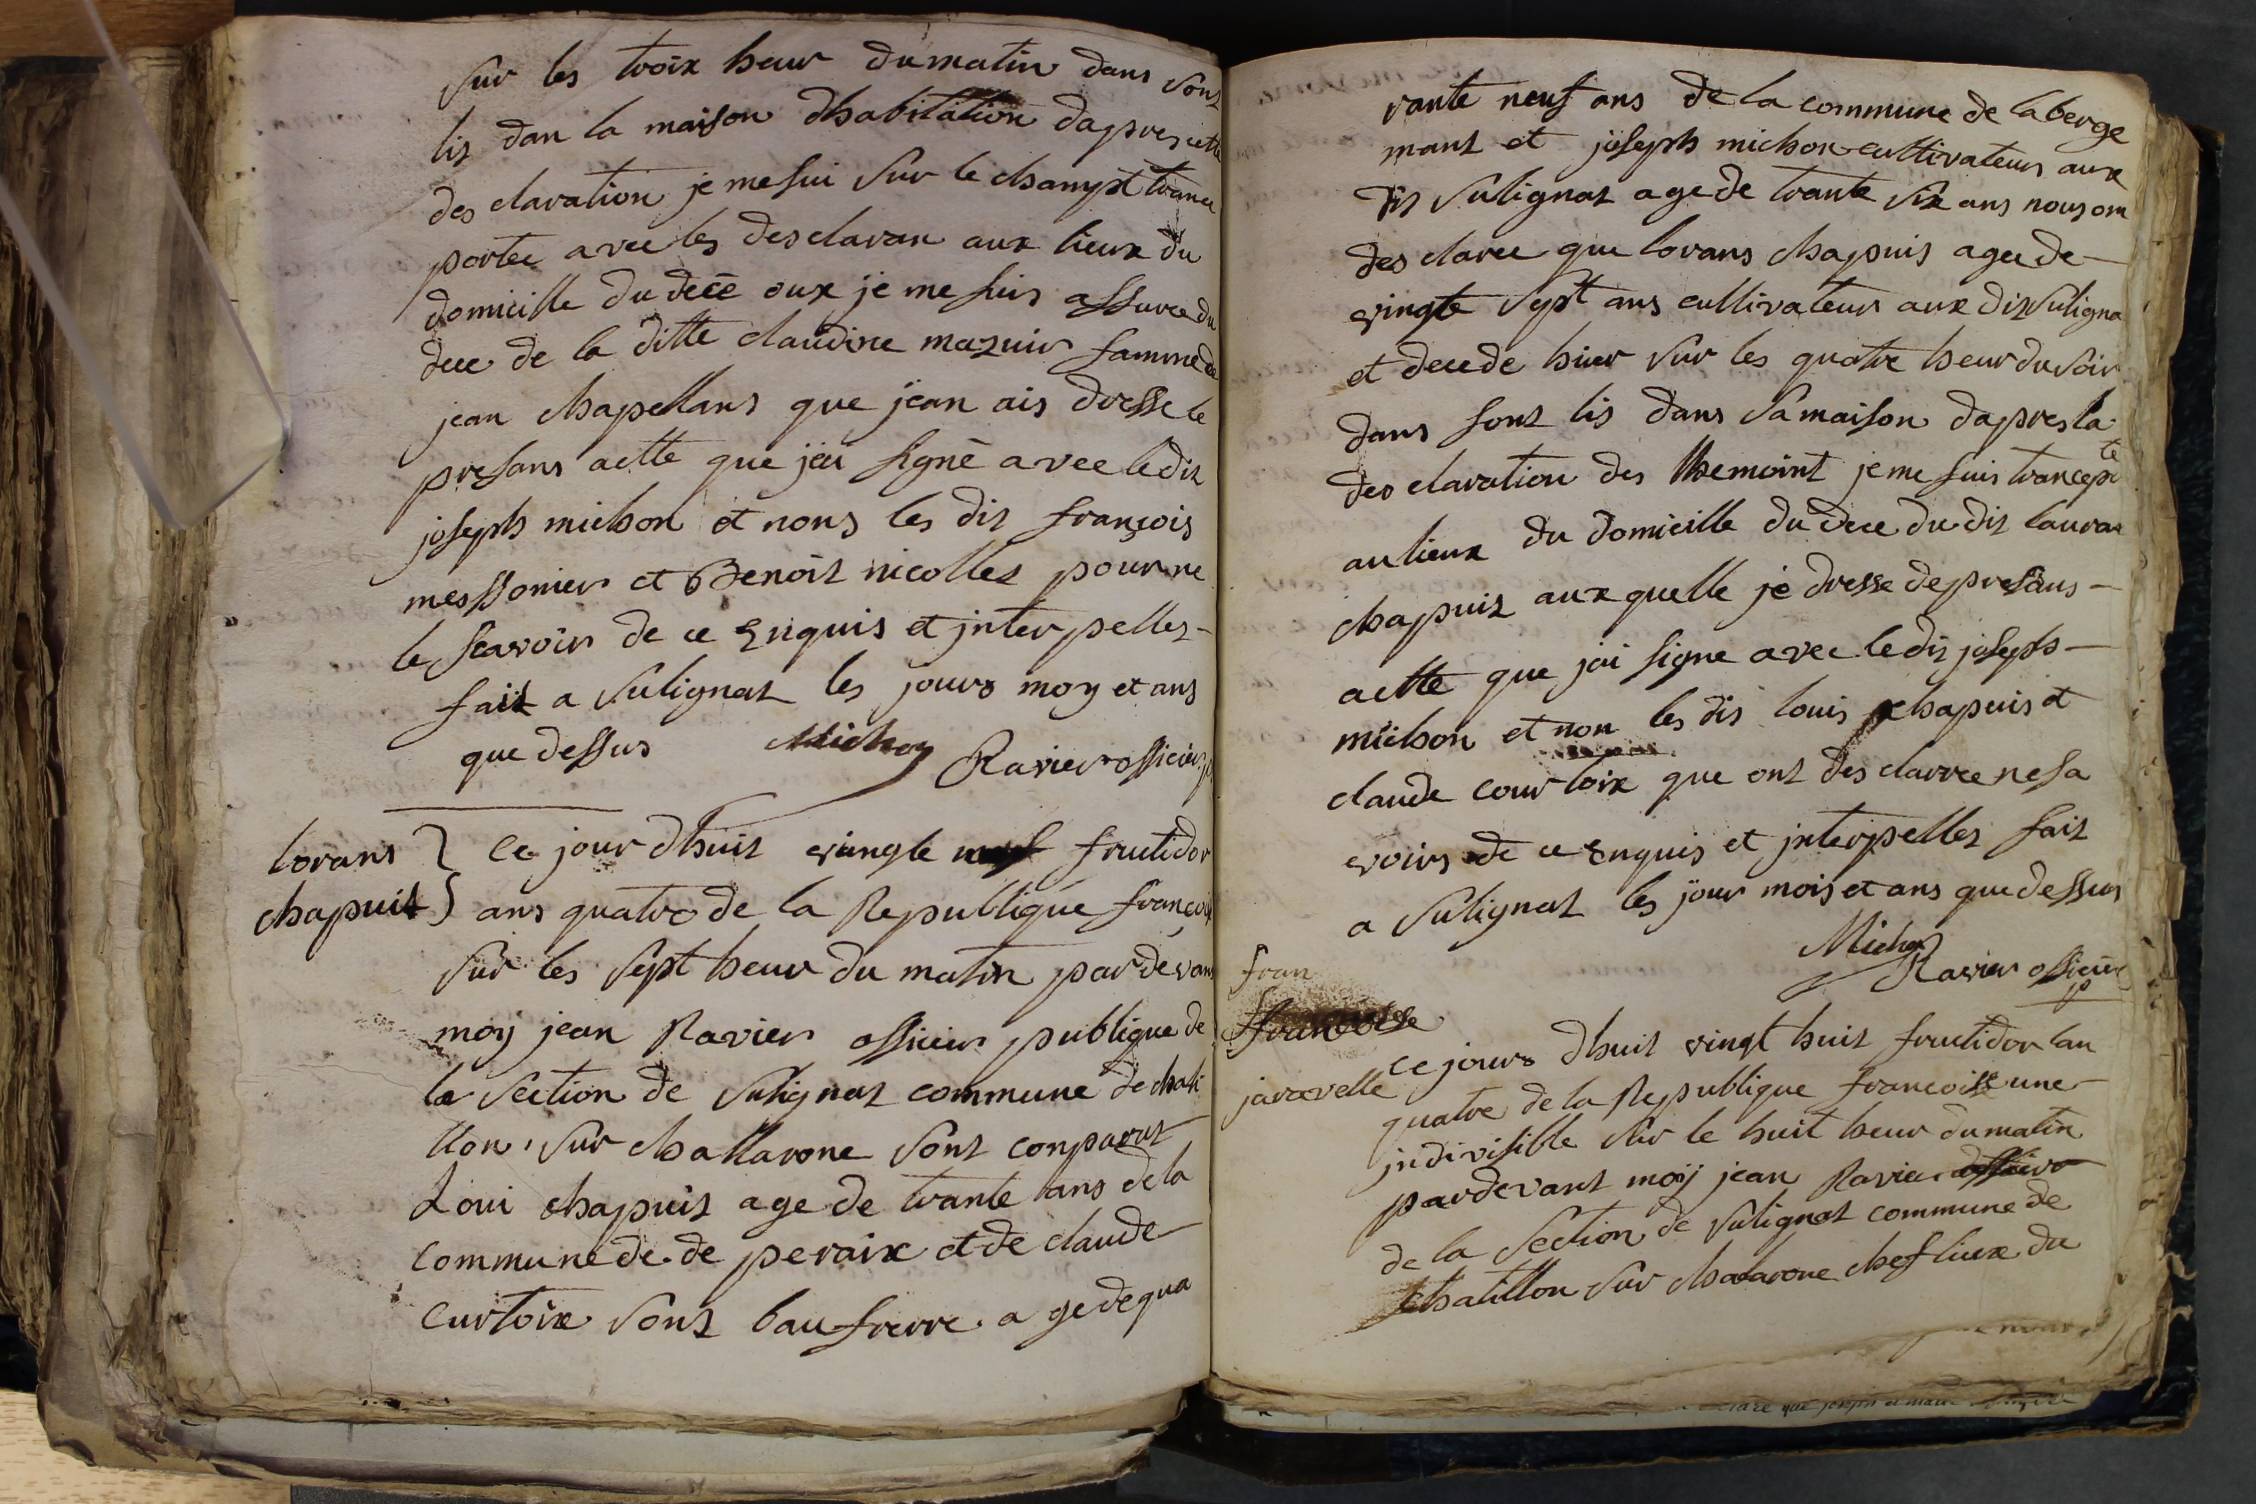 sur les troix heur du matin dans sont
lis dan la maison dhabitation dapres cette
des claration je me sui sur le champt trance
portee avec les desclaran aux lieux du
domicille du decé oux je me suis assuree du
dece de la ditte claudine mazuir famme de
jean chapellans que jean ais dresse le
presans actte que jai signé avec le dit
joseph michon et nons les dit françois
messonier et Benoit nicollet pour ne
le scavoir de ce Enquis et jnterpellez
fait a sulignat les jours moy et ans
que dessus Michon Ravier officier p
lorans
chapuit
Ce jour dhuit vingte neuf fructidor
ans quatre de la Republique françois
sur les sept heur du matin par devans
moy jean Ravier officier publique de
la section de sulignat commune de chati
llon sur challarone sont conparut
Loui chapuit age de trante ans de la
commune de de peraix et de claude
curtoix sont bau frerre age de qua
rante neuf ans de la commune de laberge
mant et joseph michon cultivateur aux
dit sulignat age de trante six ans nous on
des claree que lorans chapuis agee de
vingte sept ans cultivateur aux dit suligna
et decede hier sur les quatre heur du soir
dans sont lis dans sa maison dapres la
des claration des themoint je me suis trancepo
te
au lieux du domicille du dece du dit lauran
chapuit aux quelle je dresse de presans
actte que jai signe avec le dit joseph
michon et non les dit louis chapuis et
claude courtoix que ont des clarree ne sa
voirs de ce Enquis et jnterpellet fait
a sulignat les jour mois et ans que dessus
Michon
Ravier officier
p
fran
francoise
jaravelle
ce jours dhuit vingt huit fructidor lan
quatre de la Republique francoisse une
jndivisible sur le huit heur du matin
pardevant moy jean Ravier officier
de la section de sulignat commune de
chatillon sur chalarone chef lieux du